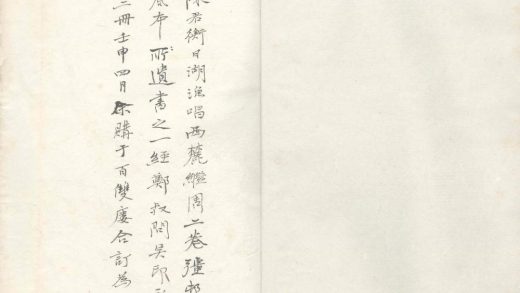 陳君衡日湖漁唱西麓繼周二卷彊邨
底本所遺書之一經鄭叔問吴印
二冊壬申四月余購于百雙廔合訂為